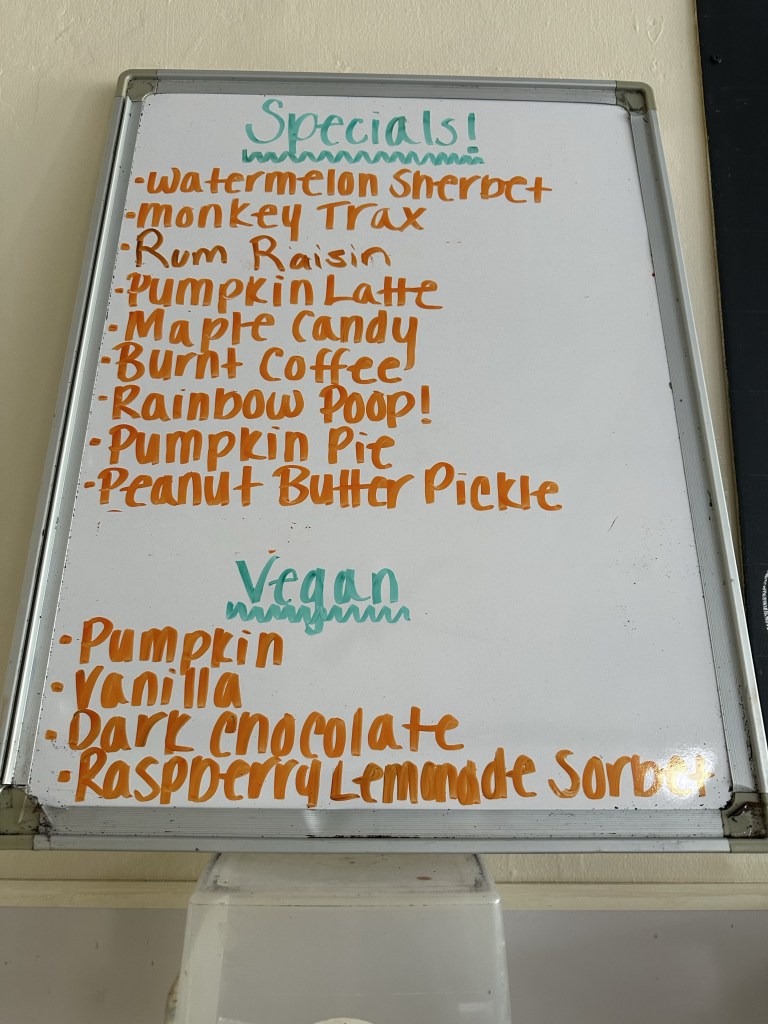 Specials!
·Watermelon Sherbet
·Monkey Trax
·Rum Raisin
·Pumpkin Latte
·Maple Candy
·Burnt Coffee
·Rainbow Poop!
·Pumpkin Pie
·Peanut Butter Pickle
Vegan
·Pumpkin
·Vanilla
·Dark Chocolate
·Raspberry Lemonade Sorbet